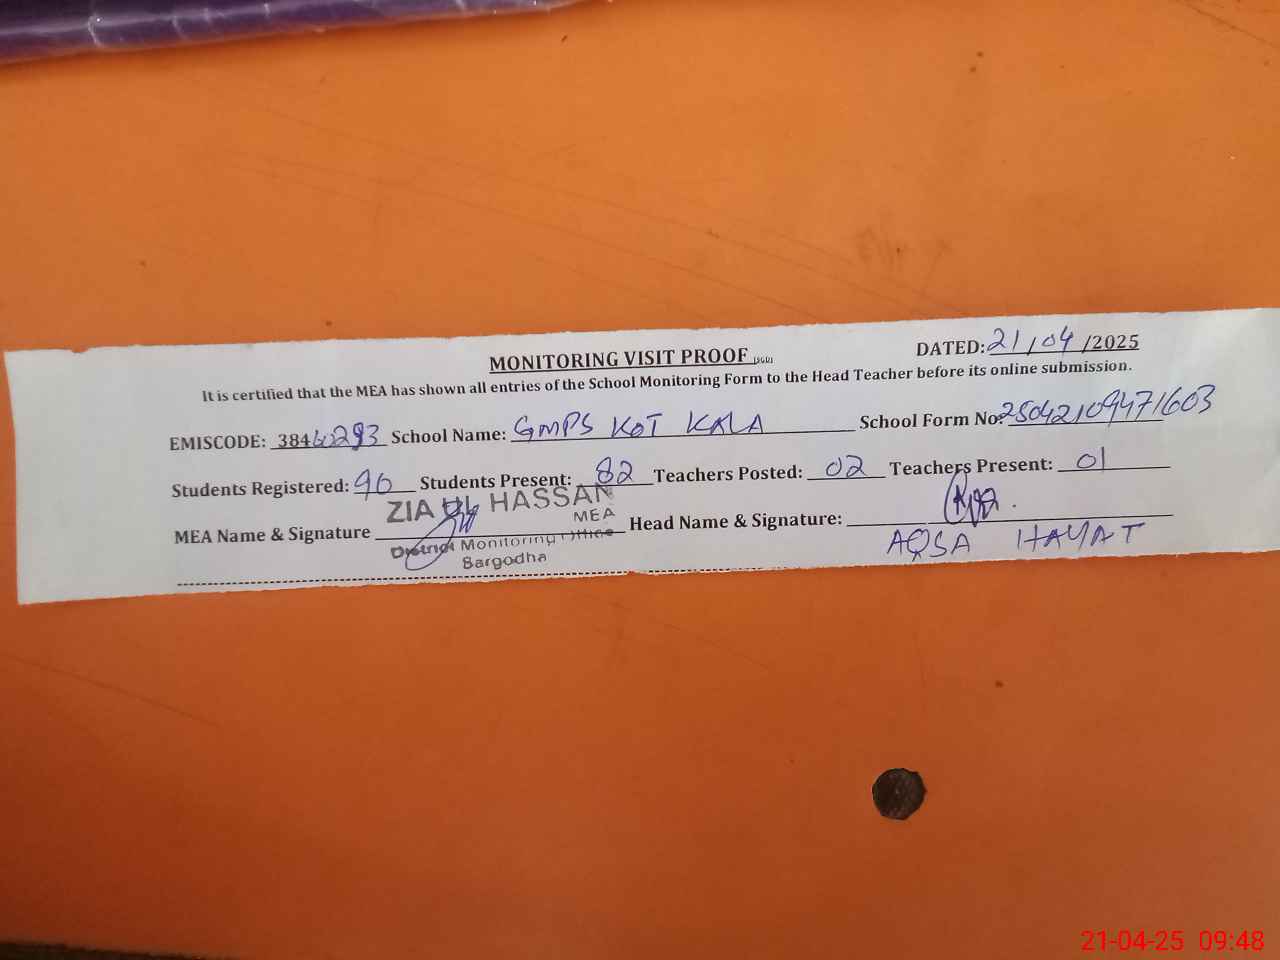 MONITORING VISIT PROOF (SGD)
DATED: 21/04/2025
It is certified that the MEA has shown all entries of the School Monitoring Form to the Head Teacher before its online submission.
EMISCODE: 38460293 School Name: GMPS KOT KALA School Form No: 25042109471603
Students Registered: 90 Students Present: 82 Teachers Posted: 02 Teachers Present: 01
ZIA UL HASSAN
MEA
MEA Name & Signature Head Name & Signature:
District Monitoring Office
Sargodha
AQSA HAYAT
21-04-25 09:48